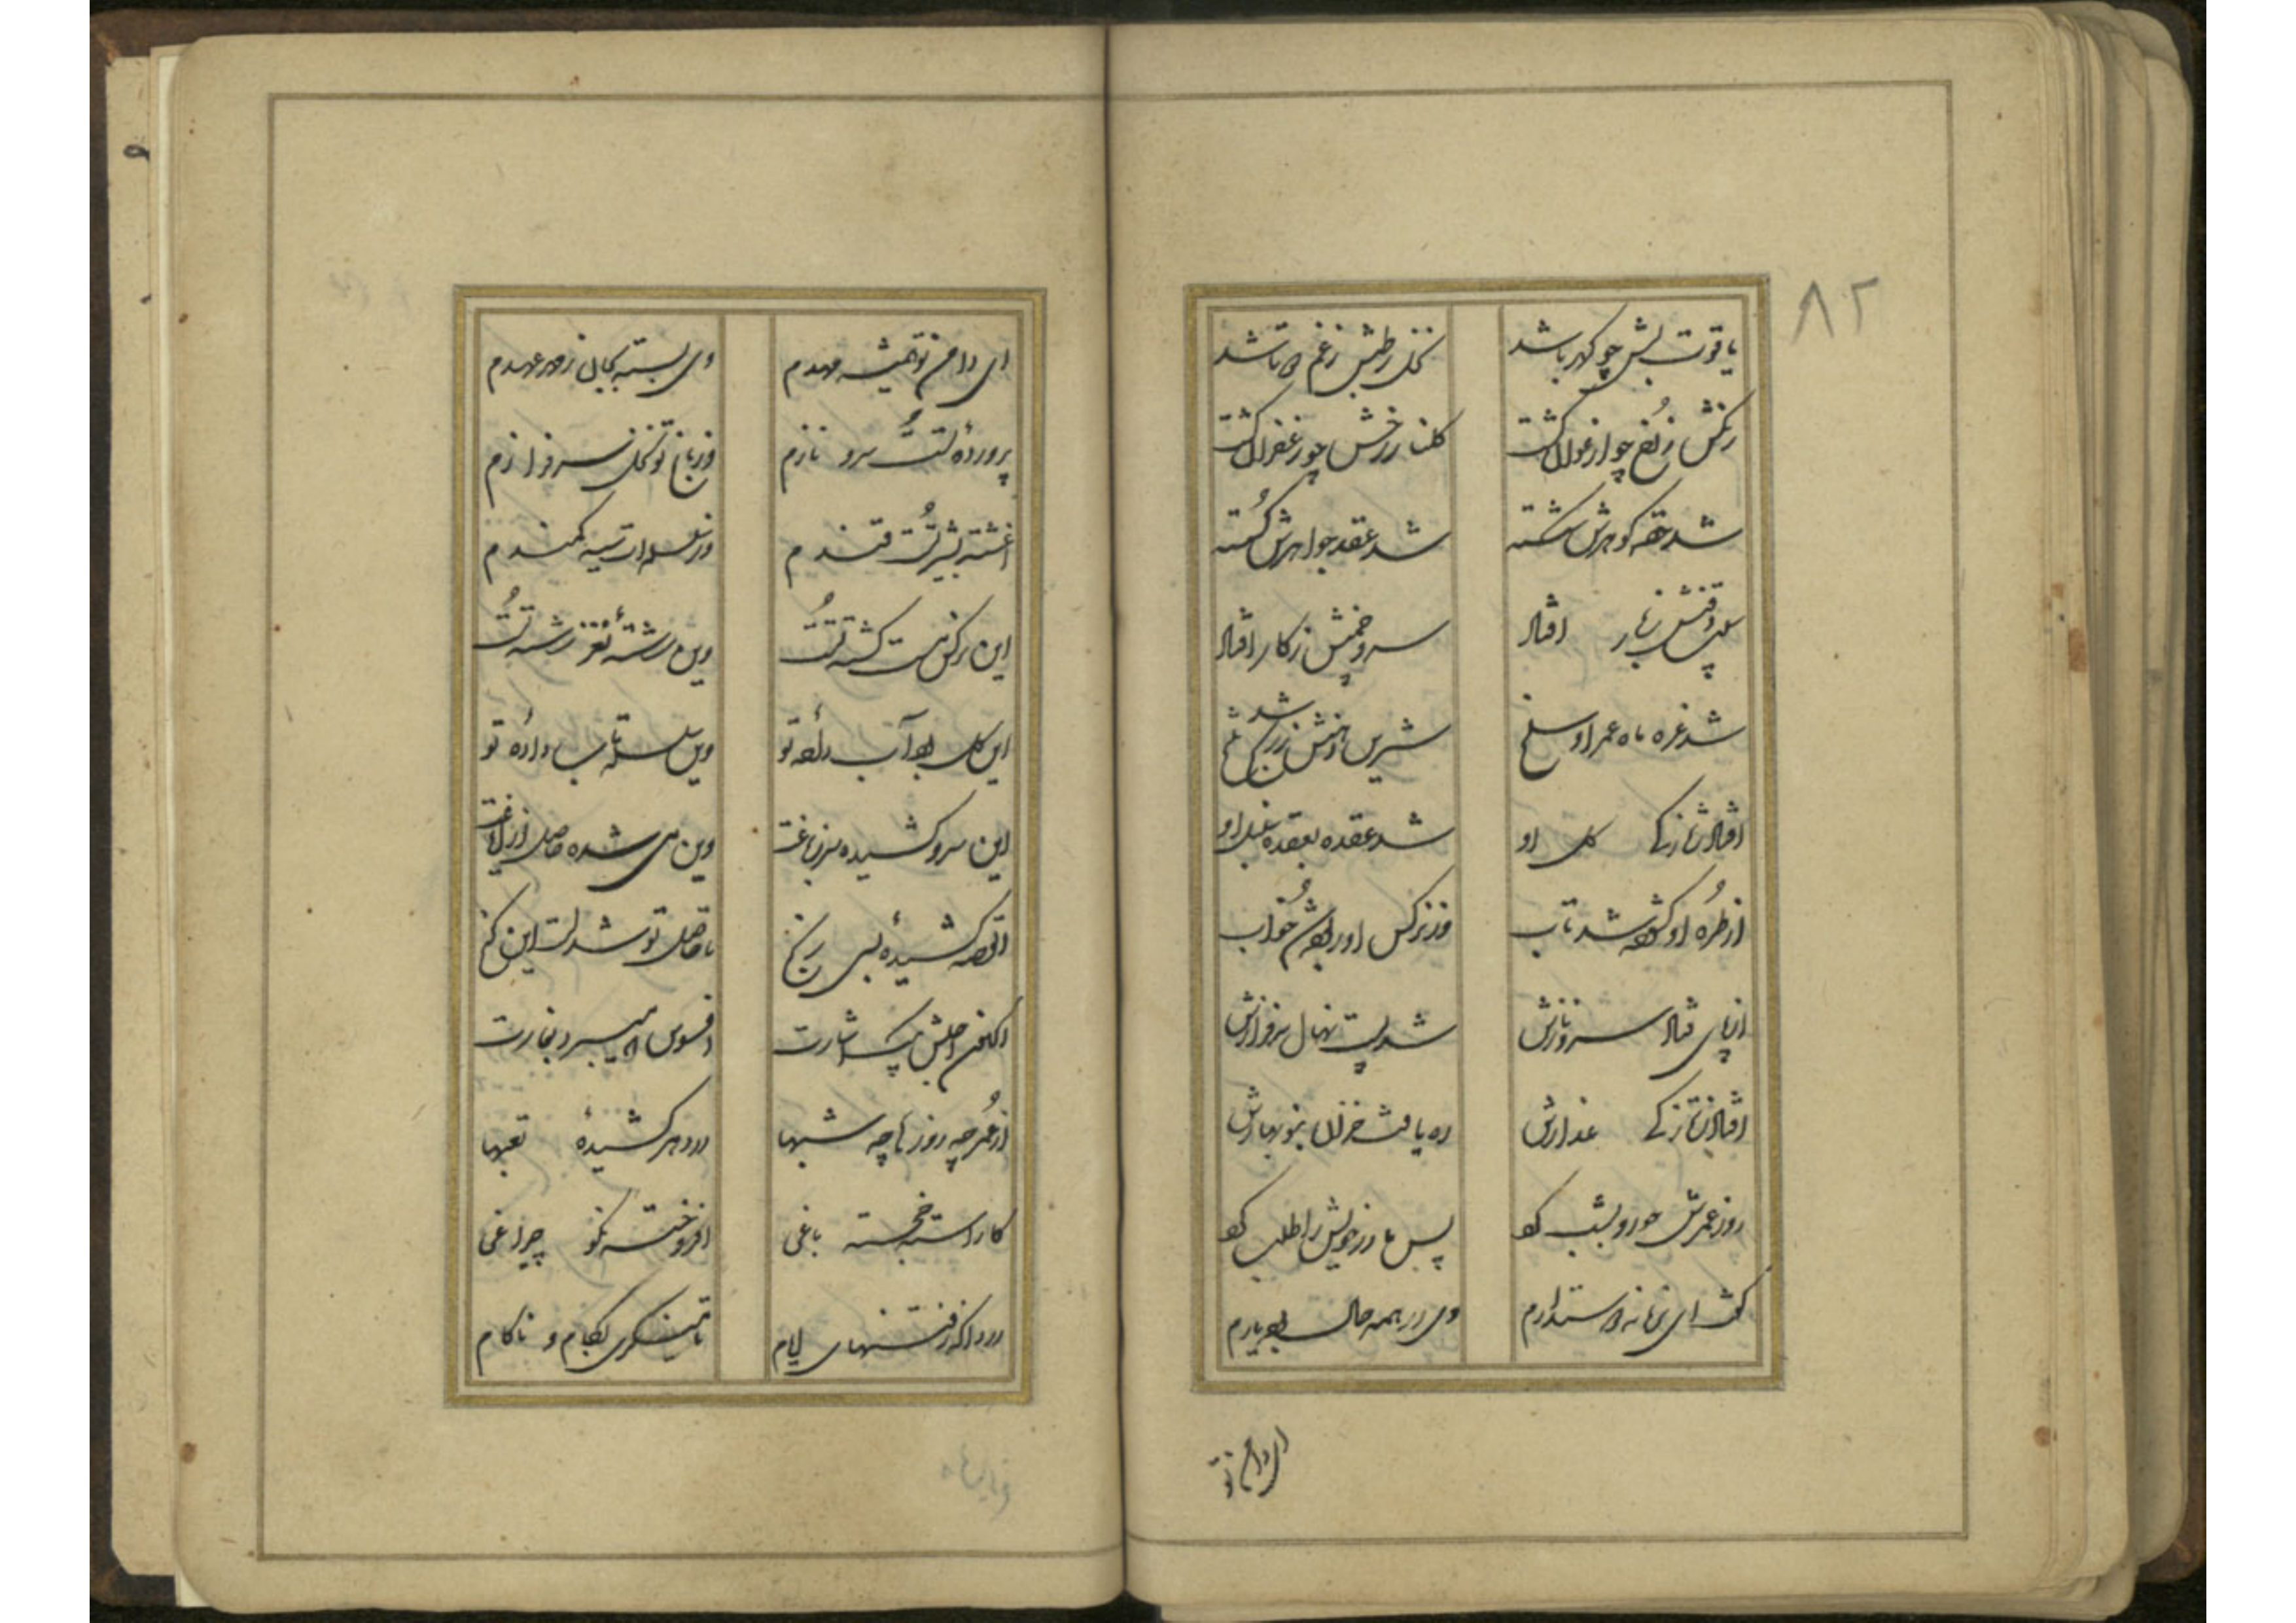 ۸۲
یاقوت لبش چو کهربا شد نخل رطبش ز غم دوتا شد
رنگش ز رخ چو ارغوان گشت گلنار رخش چو زعفران گشت
شد حقه گوهرش شکسته شد عقد جواهرش گسسته
سیب ذقنش ز بار افتاد سرو چمنش ز کار افتاد
شد غره ماه عمر او سلخ شیرین دهنش ز زهر شد تلخ
افتاد ز تازگی گل او شد عقده بعقده سنبل او
از طره او گشوده شد تاب وز نرگس او ربوده شد خواب
از پای فتاد سرو نازش شد پست نهال سرفرازش
افتاد ز تازگی عذارش ره یافت خزان بنوبهارش
روز عمرش چو رو بشب کرد پس مادر خویش را طلب کرد
گفت ای ز زمانه دوستدارم وی در همه حال بوده یارم
ای دامن تو
ای دامن تو همیشه مهدم وی بسته بجان ز مهر عهدم
پرورده تست سرو نازم وز باغ تو نخل سرفرازم
آغشته بشیر تست قندم وز سلسله‌ات سیه کمندم
این نرگس مست کشته تست وین رشته نغز رشته تست
این گل بود آب داده تو وین سلسله تاب داده تو
این سرو کشیده سر ز باغت وین می شده حاصل از ایاغت
القصه کشیده بسی رنج تا حاصل تو شدست این گنج
اکنون اجلش بیک اشارت افسوس که میبرد بغارت
از عمر چه روزها چه شبها در دهر کشیده تعبها
کاراسته خجسته باغی افروخته نکو چراغی
دردا که ز فتنهای ایام تا مینگری بکام و ناکام